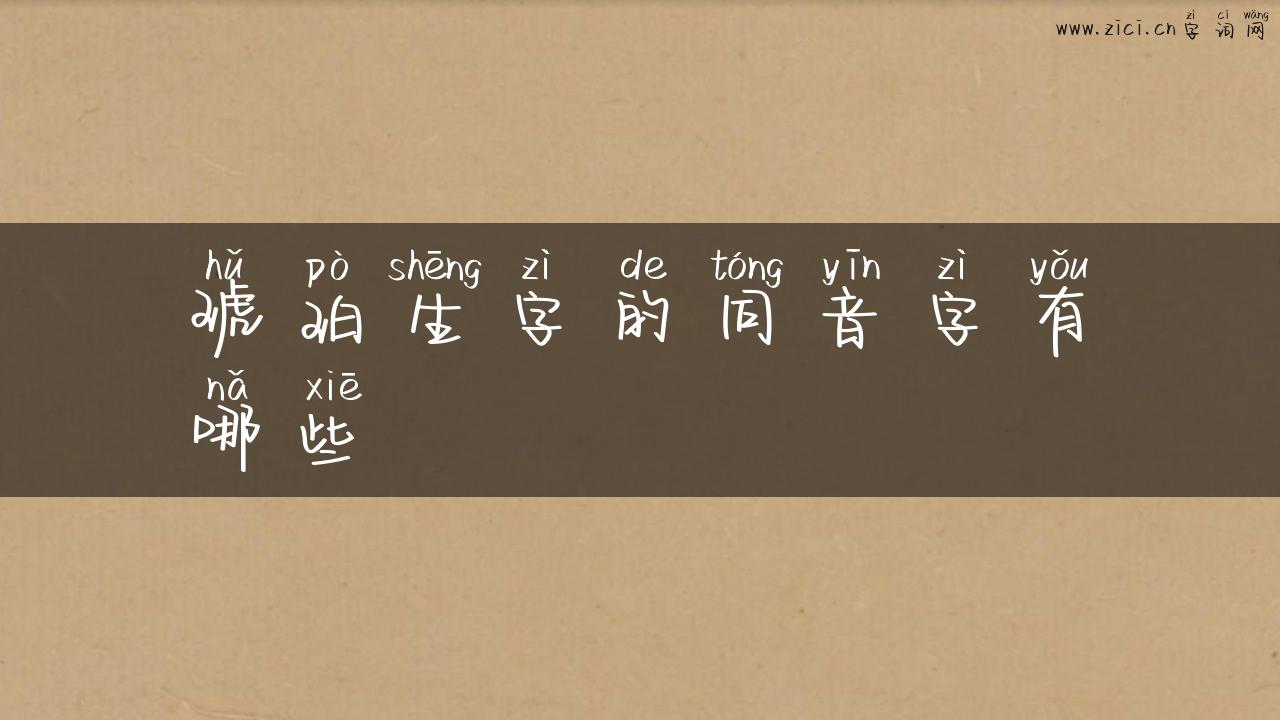 zì cí wǎng
www.zici.cn 字 词 网
hǔ pò shēng zì de tóng yīn zì yǒu
琥 珀 生 字 的 同 音 字 有
nǎ xiē
哪 些